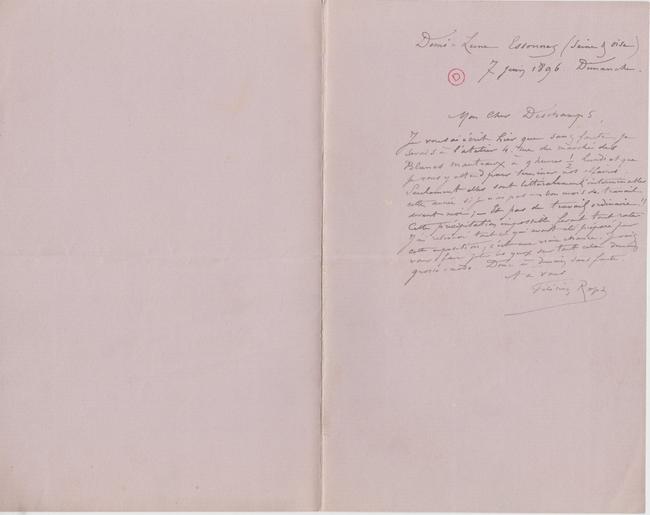 Demi-Lune Essonnes (Seine & Oise)
7 Juin 1896. Dimanche.
D
Mon Cher Deschamps,
Je vous ai écrit hier que sans faute je
serais à l'atelier 4, rue du marché des
Blancs manteaux à 9 heures 1/2 lundi et que
je vous y attend pour terminer nos affaires.
Seulement elles sont littéralement interminables
cette année si je n'ai pas un bon mois de travail
devant moi; — Et pas de travail ordinaire!!
Cette précipitation impossible ferait tout rater.
J'ai tout ce qui avait été préparé pour
cette exposition, c'est une vraie
vous faire sur tout cela demain
Donc à demain sans faute.
A vous
Félicien Rops